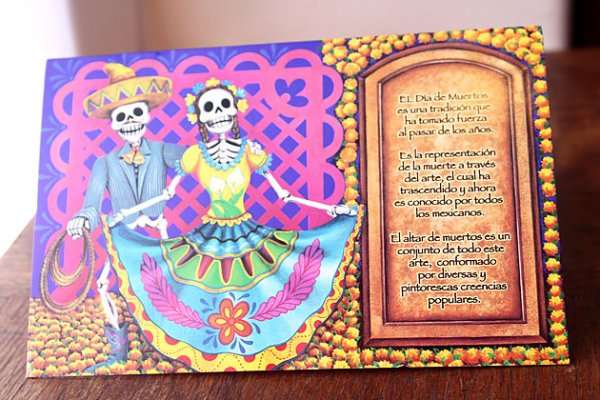 El Día de Muertos
es una tradición que
ha tomado fuerza
al pasar de los años.
Es la representación
de la muerte a través
del arte, el cual ha
trascendido y ahora
es conocido por todos
los mexicanos.
El altar de muertos es un
conjunto de todo este
arte, conformado
por diversas y
pintorescas creencias
populares.